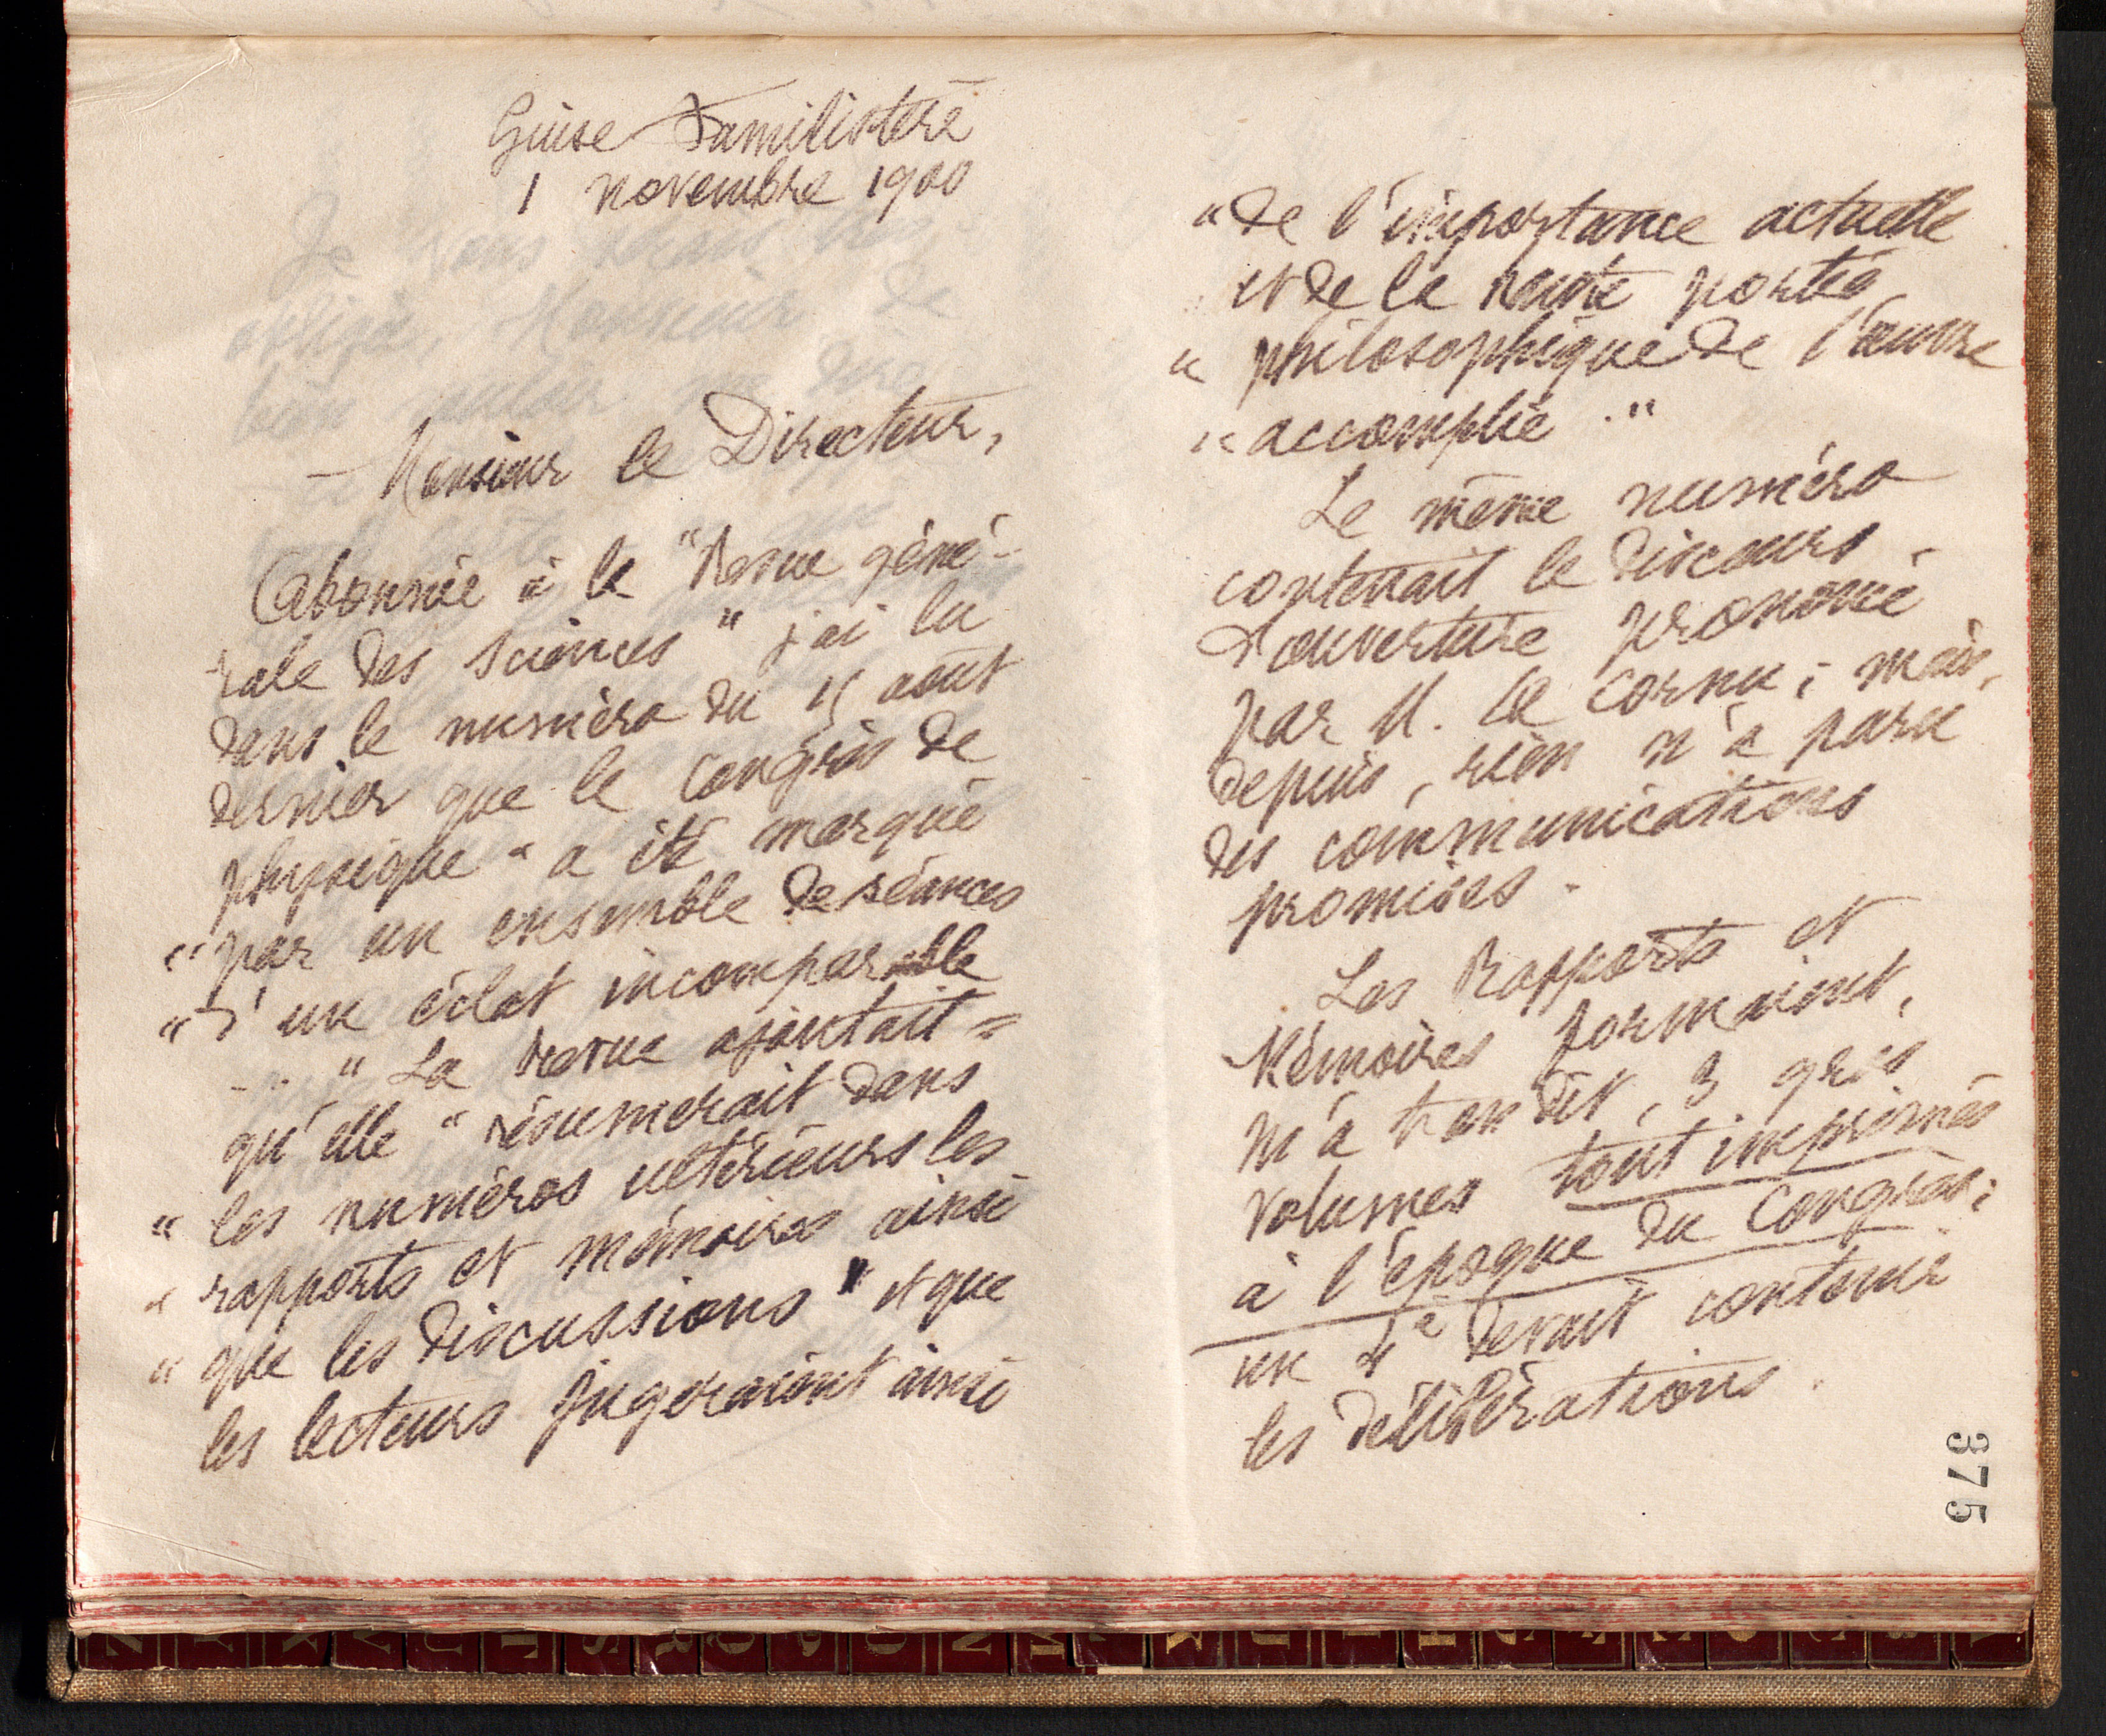 Guise Familistère
1 novembre 1900
Monsieur le Directeur,
Abonnée à la "Revue géné-
rale des Sciences" j'ai lu
dans le numéro du 15 août
dernier que le Congrès de
physique "a été marqué
"par un ensemble de séances
"d'un éclat incomparable
... " La Revue ajoutait =
qu'elle "résumerait dans
"les numéros ultérieurs les
"rapports et mémoires ainsi
"que les discussions" et que
les lecteurs jugeraient ainsi
"de l'importance actuelle
et de la haute portée
"philosophique de l'œuvre
"accomplie."
Le même numéro
contenait le discours
d'ouverture prononcé
par M. le Cornu; mais,
depuis, rien n'a paru
des communications
promises.
Les Rapports et
Mémoires formaient,
m'a-t-on dit, 3 gros
volumes tout imprimés
à l'époque du Congrès;
un 4e devait contenir
les délibérations.
375
Z Y X V U T S R Q P O N M L K J I H G F E D C B A